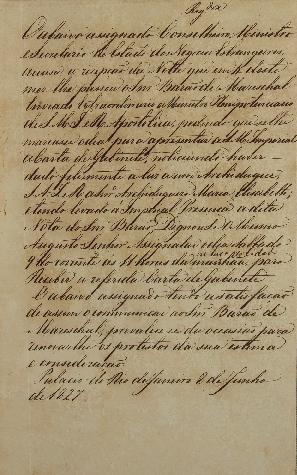 O abaixo assignado Conselheiro, Ministro
e Secretario de Estado dos Negocios Estrangeiros,
accusa a recepção da Nota que em deste
mez lhe passou o Snr Barão de Mareschal
Enviado Extraordinario e Ministro Plenipotenciario
de S. M. I. e R. Apostolica, pedindo que se lhe
marcasse o dia para apresentar a S. M. Imperial
a Carta de Gabinete, noticiando haver
dado felizmente á luz uma Archiduquesa,
S. A. I. e R. a Snra Archiduquesa Maria
e tendo levado á Imperial Presença a dita
Nota do Snr Barão, Dignou-se o Mesmo
Augusto Senhor Assignalar o dia Sabbado
9 do corrente ás 11 horas da manhãa, para
Receber a referida Carta de Gabinete
O abaixo assignado tendo a satisfação
de assim o communicar ao Snr Barão de
Mareschal, prevalece-se da occasião para
renovar-lhe os protestos da sua estima
e consideração.
Palacio do Rio de Janeiro 8 de Junho
de 1827.